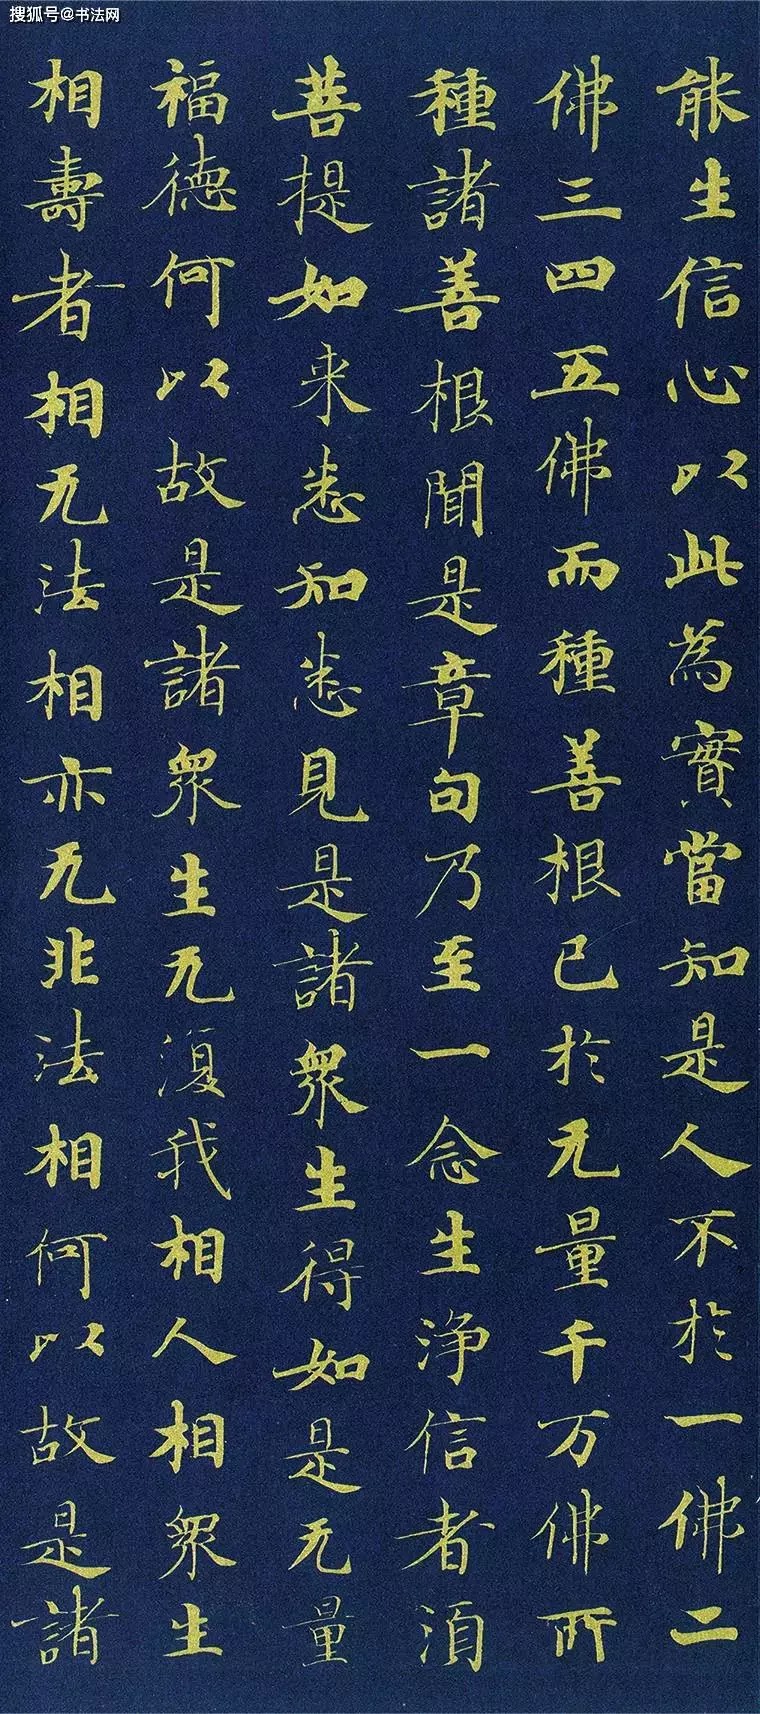 搜狐号@书法网
能生信心以此為實當知是人不於一佛二
佛三四五佛而種善根已於无量千万佛所
種諸善根聞是章句乃至一念生淨信者須
菩提如来悉知悉見是諸衆生得如是无量
福德何以故是諸衆生无復我相人相衆生
相壽者相无法相亦无非法相何以故是諸